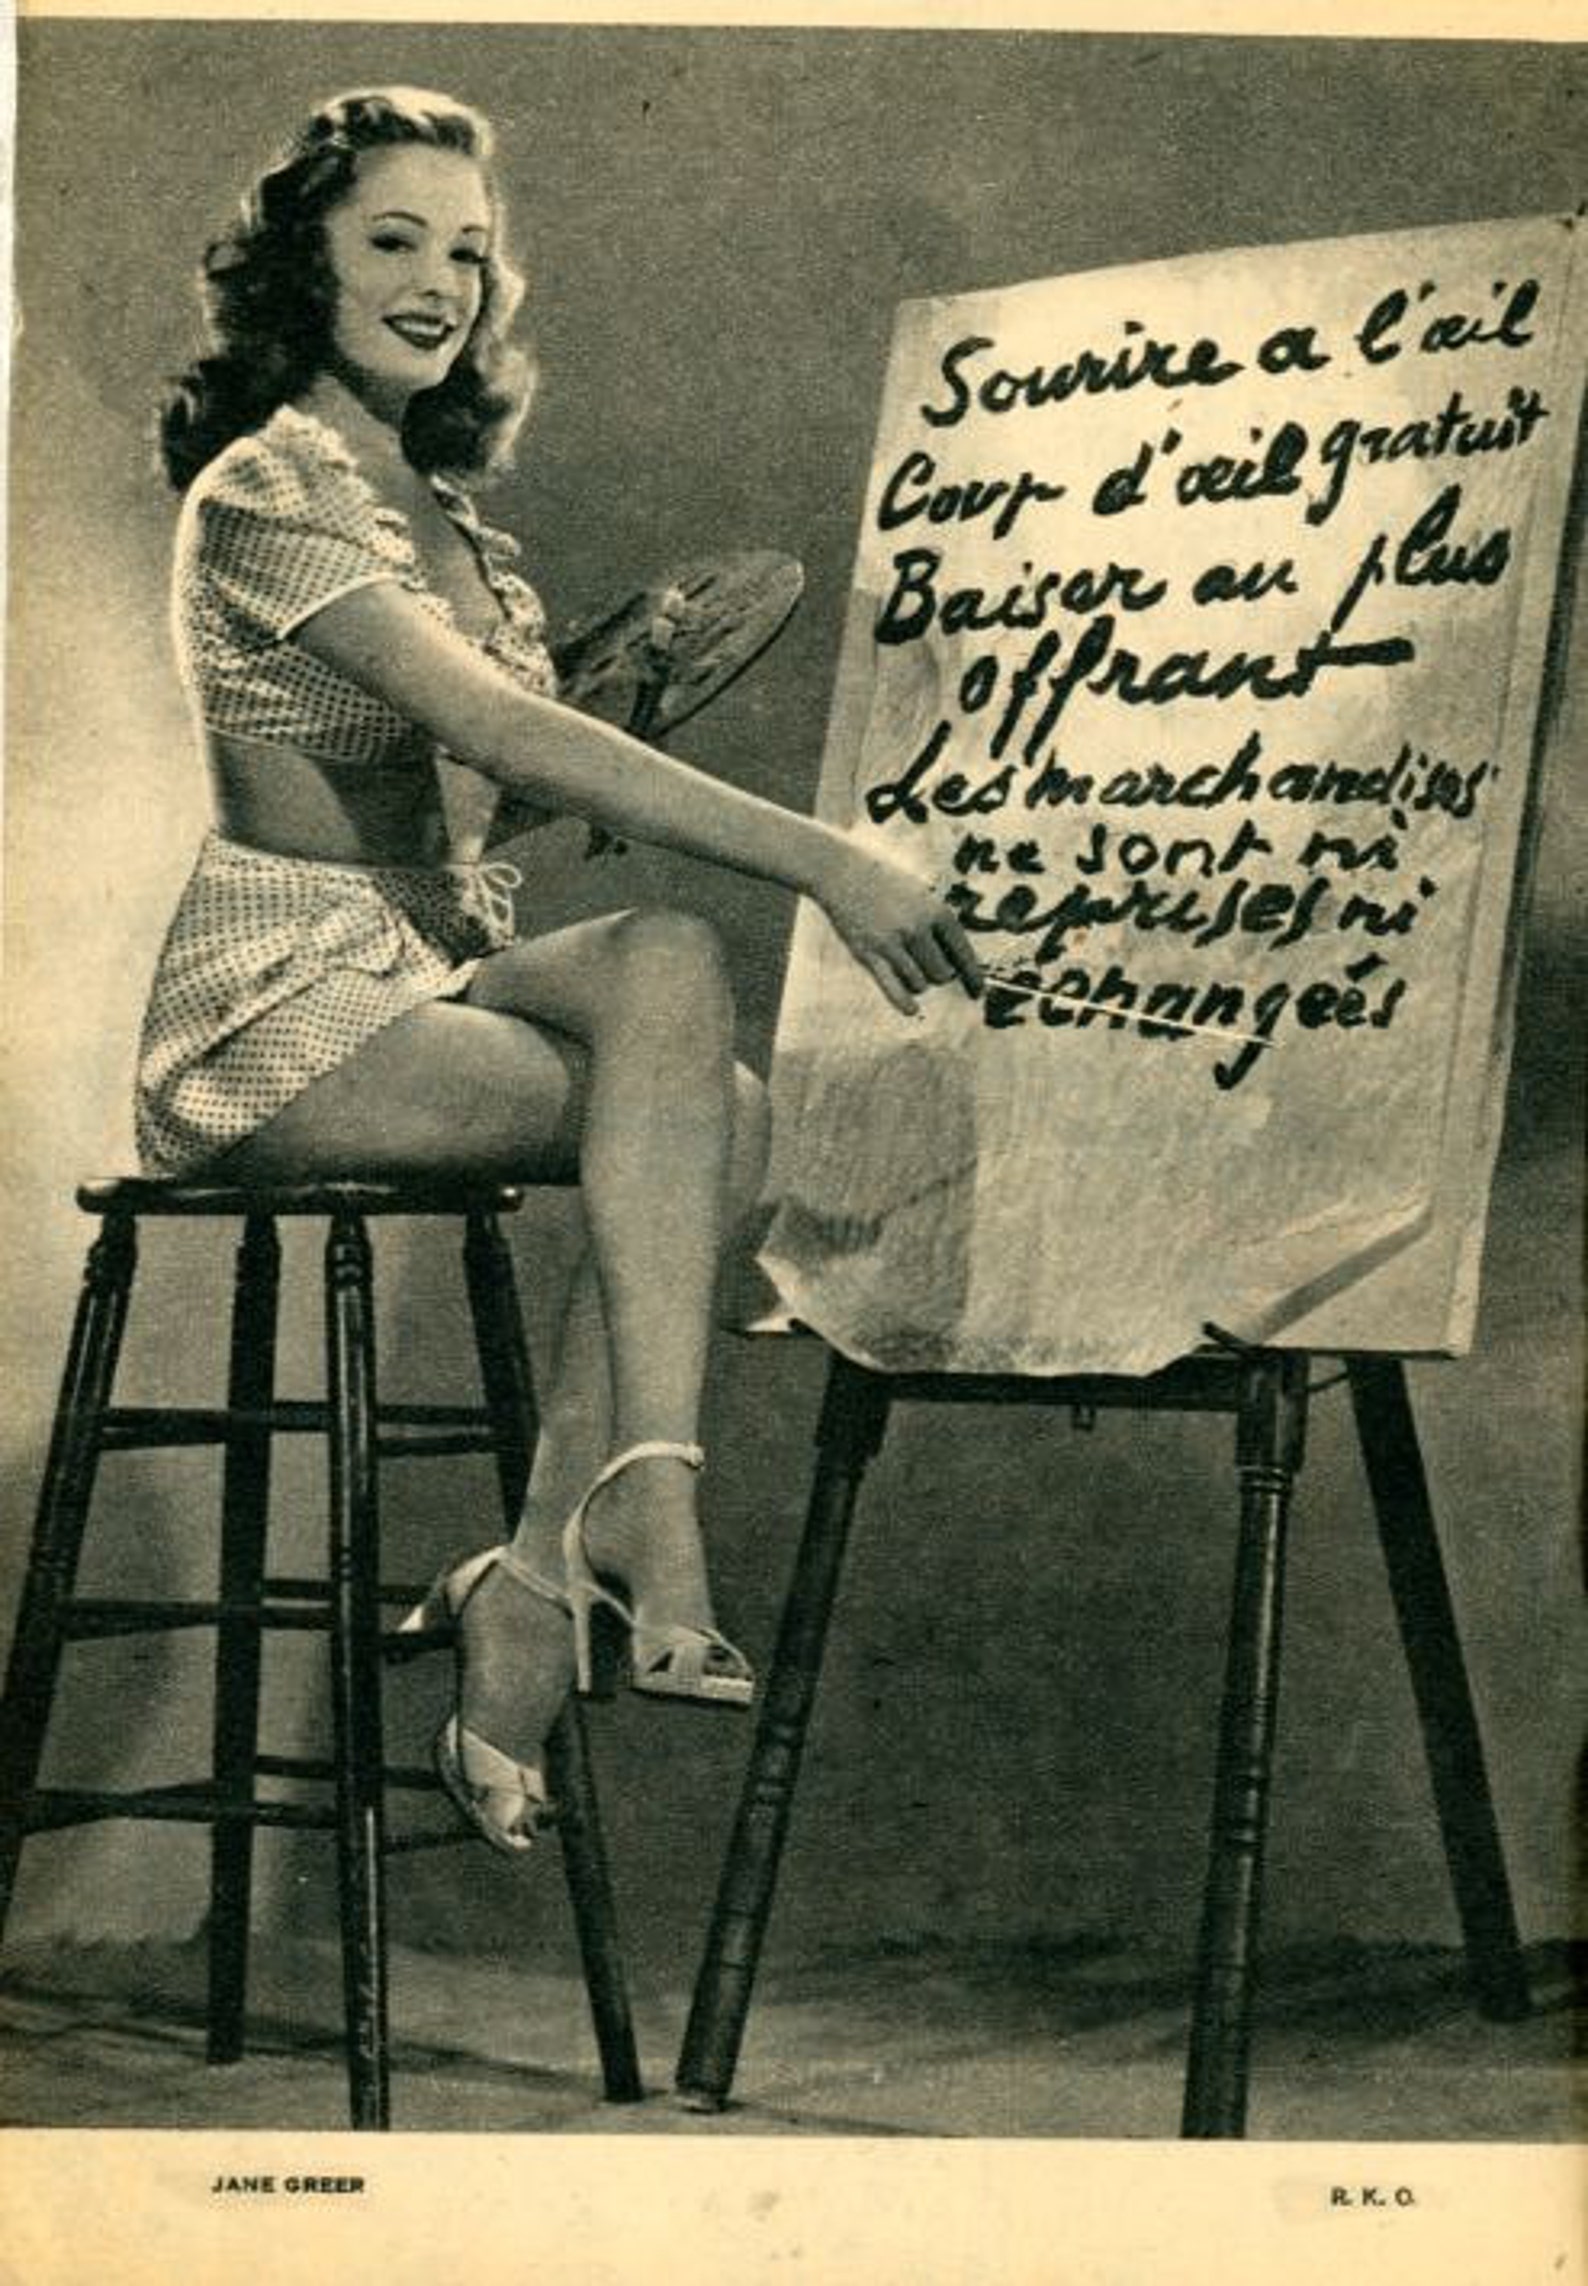 Sourire a l'œil
Coup d'œil gratuit
Baiser au plus
offrant
Les marchandises
ne sont ni
reprises ni
échangeés
JANE GREER
R. K. O.